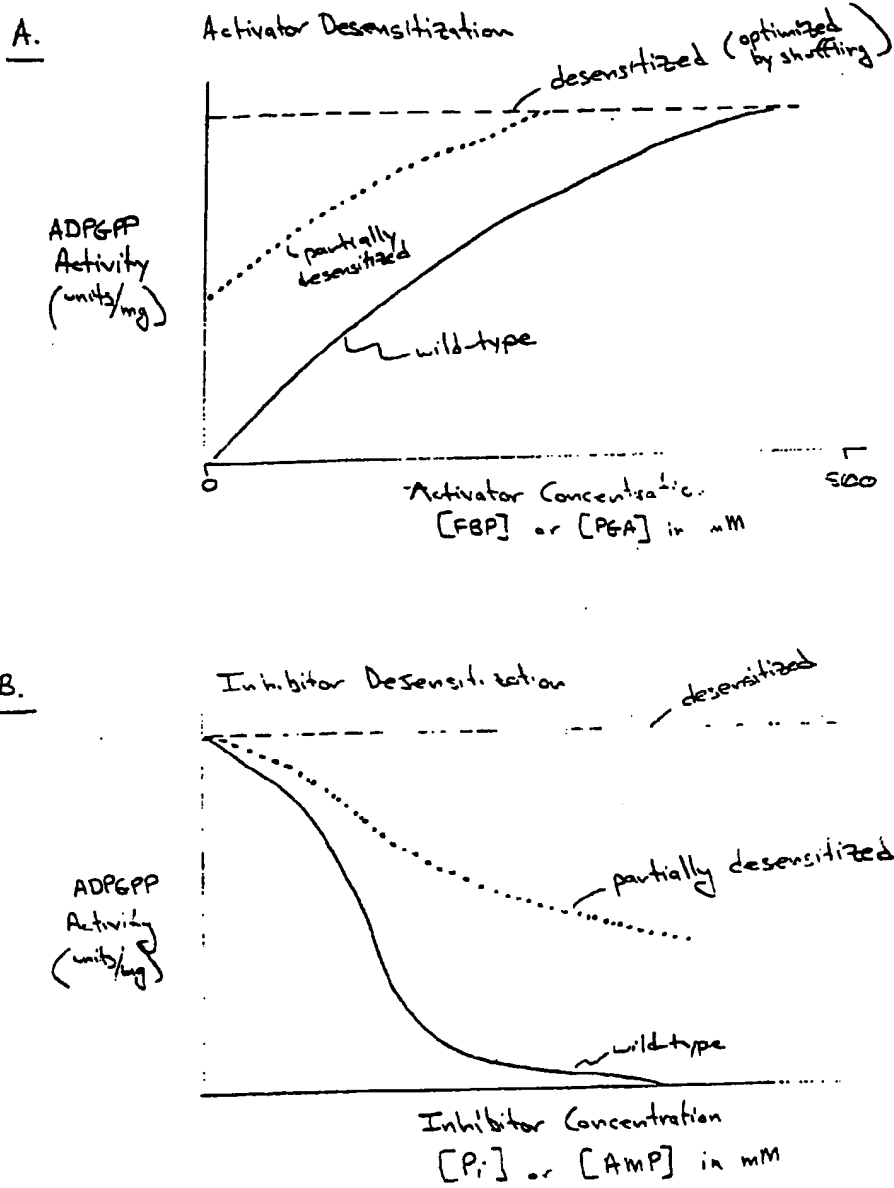 A.
Activator Desensitization
desensitized (optimized
by shuffling)
ADPGPP
Activity
(units/mg)
partially
desensitized
wild-type
0
500
Activator
[FBP] or [PGA] in mM
B.
Inhibitor Desensitization
desensitized
ADPGPP
Activity
(units/mg)
partially desensitized
wild-type
Inhibitor Concentration
[Pi] or [AMP] in mM